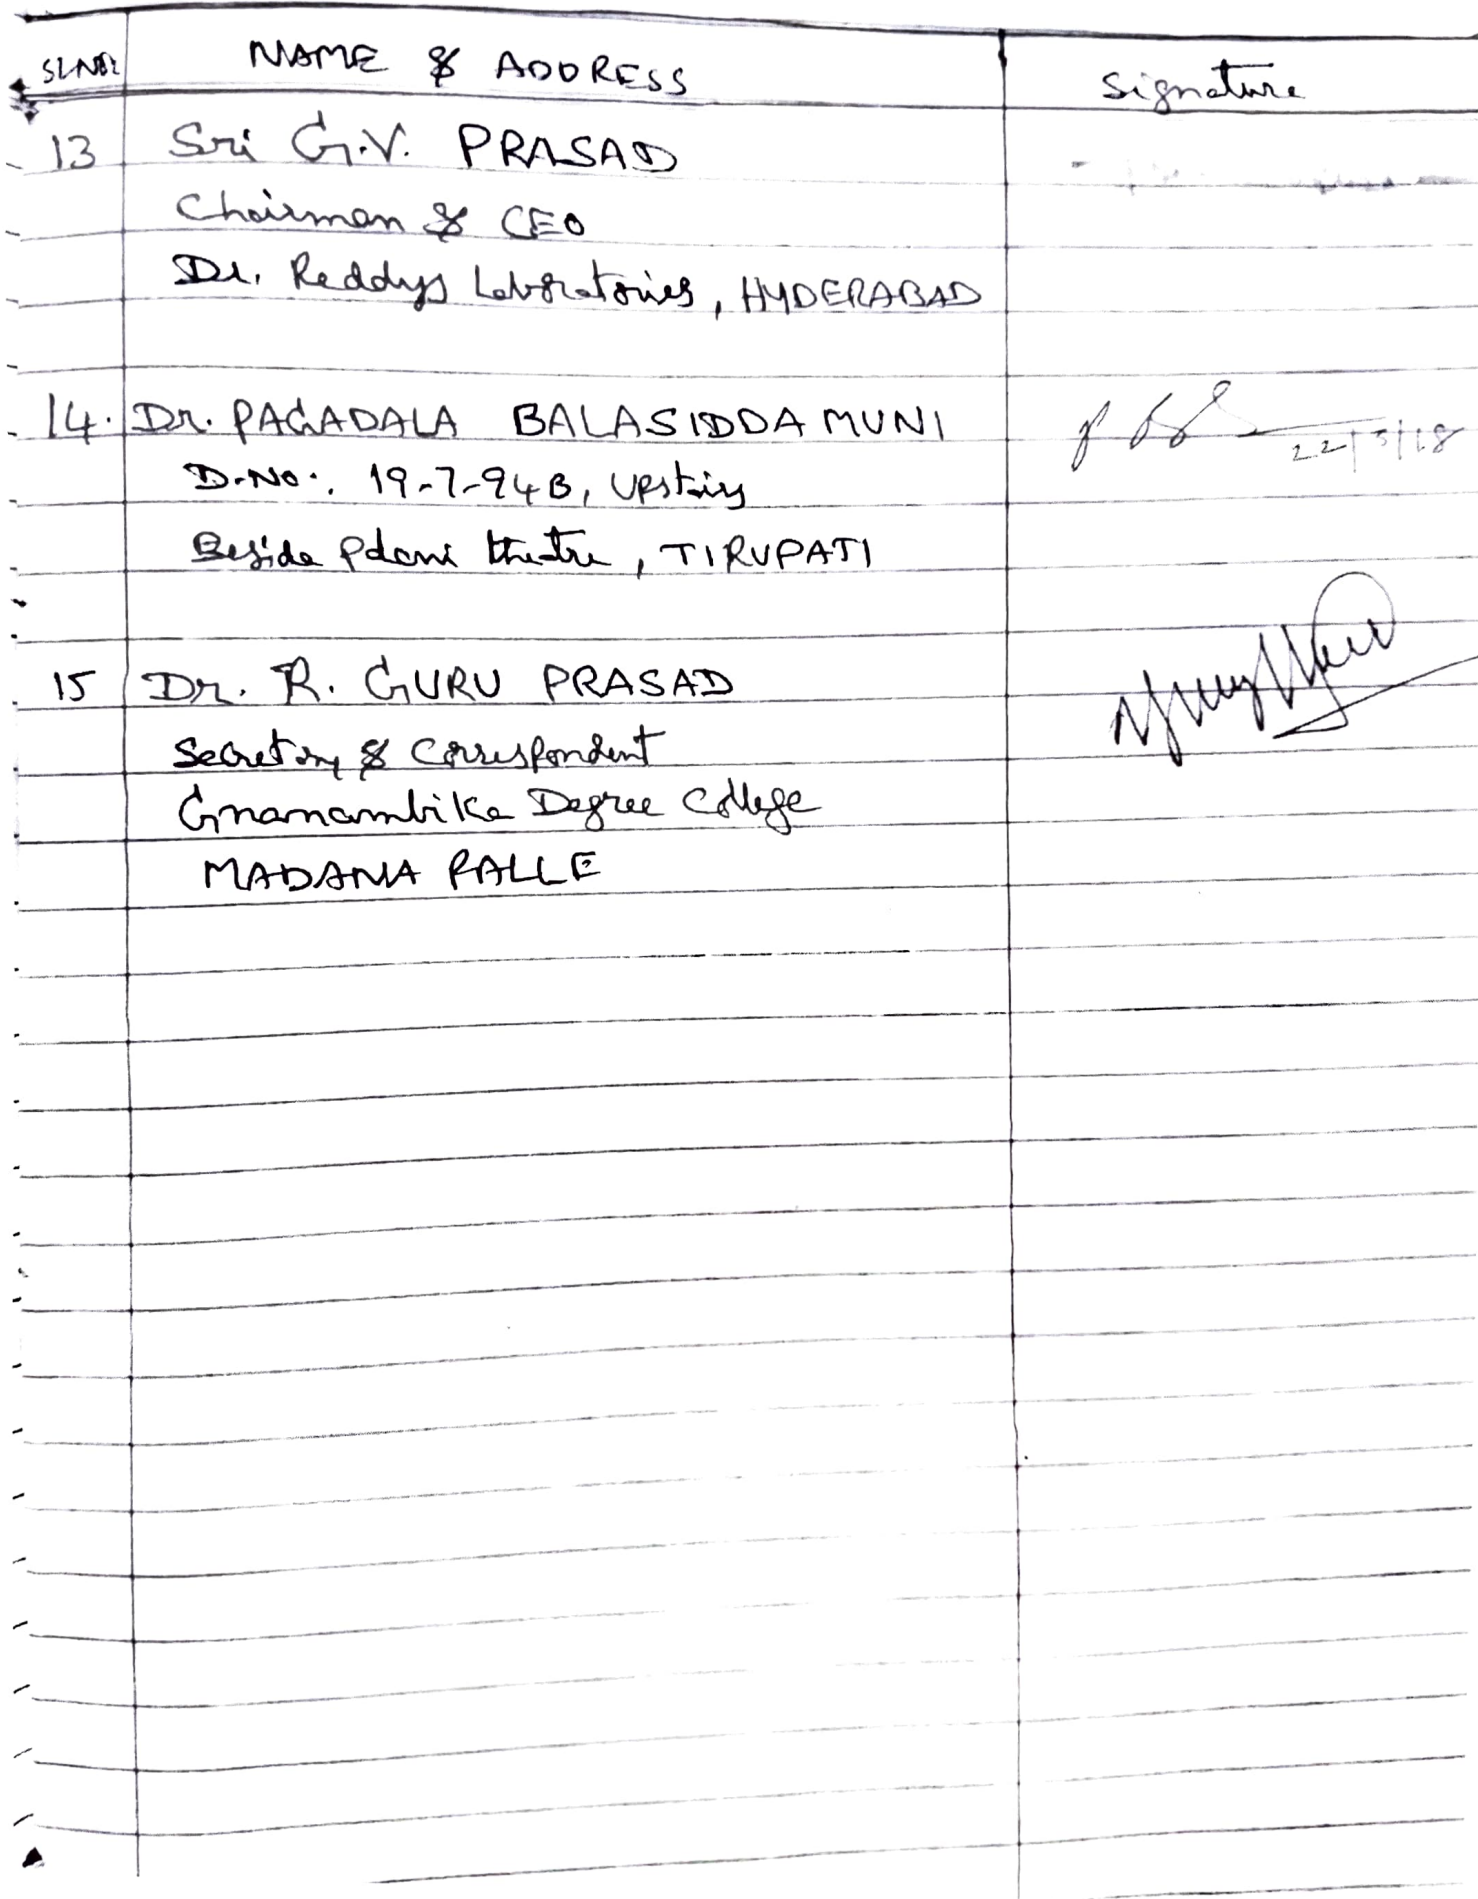 SL.NO. NAME & ADDRESS Signature
13 Sri G.V. PRASAD
Chairman & CEO
Dr. Reddys Laboratories, HYDERABAD
14. Dr. PAGADALA BALASIDDAMUNI 22/5/18
D.No.: 19-7-94B, Upstirs
Beside theatre, TIRUPATI
15 Dr. R. GURU PRASAD
Secretary & Correspondent
Gnanambika Degree College
MADANAPALLE